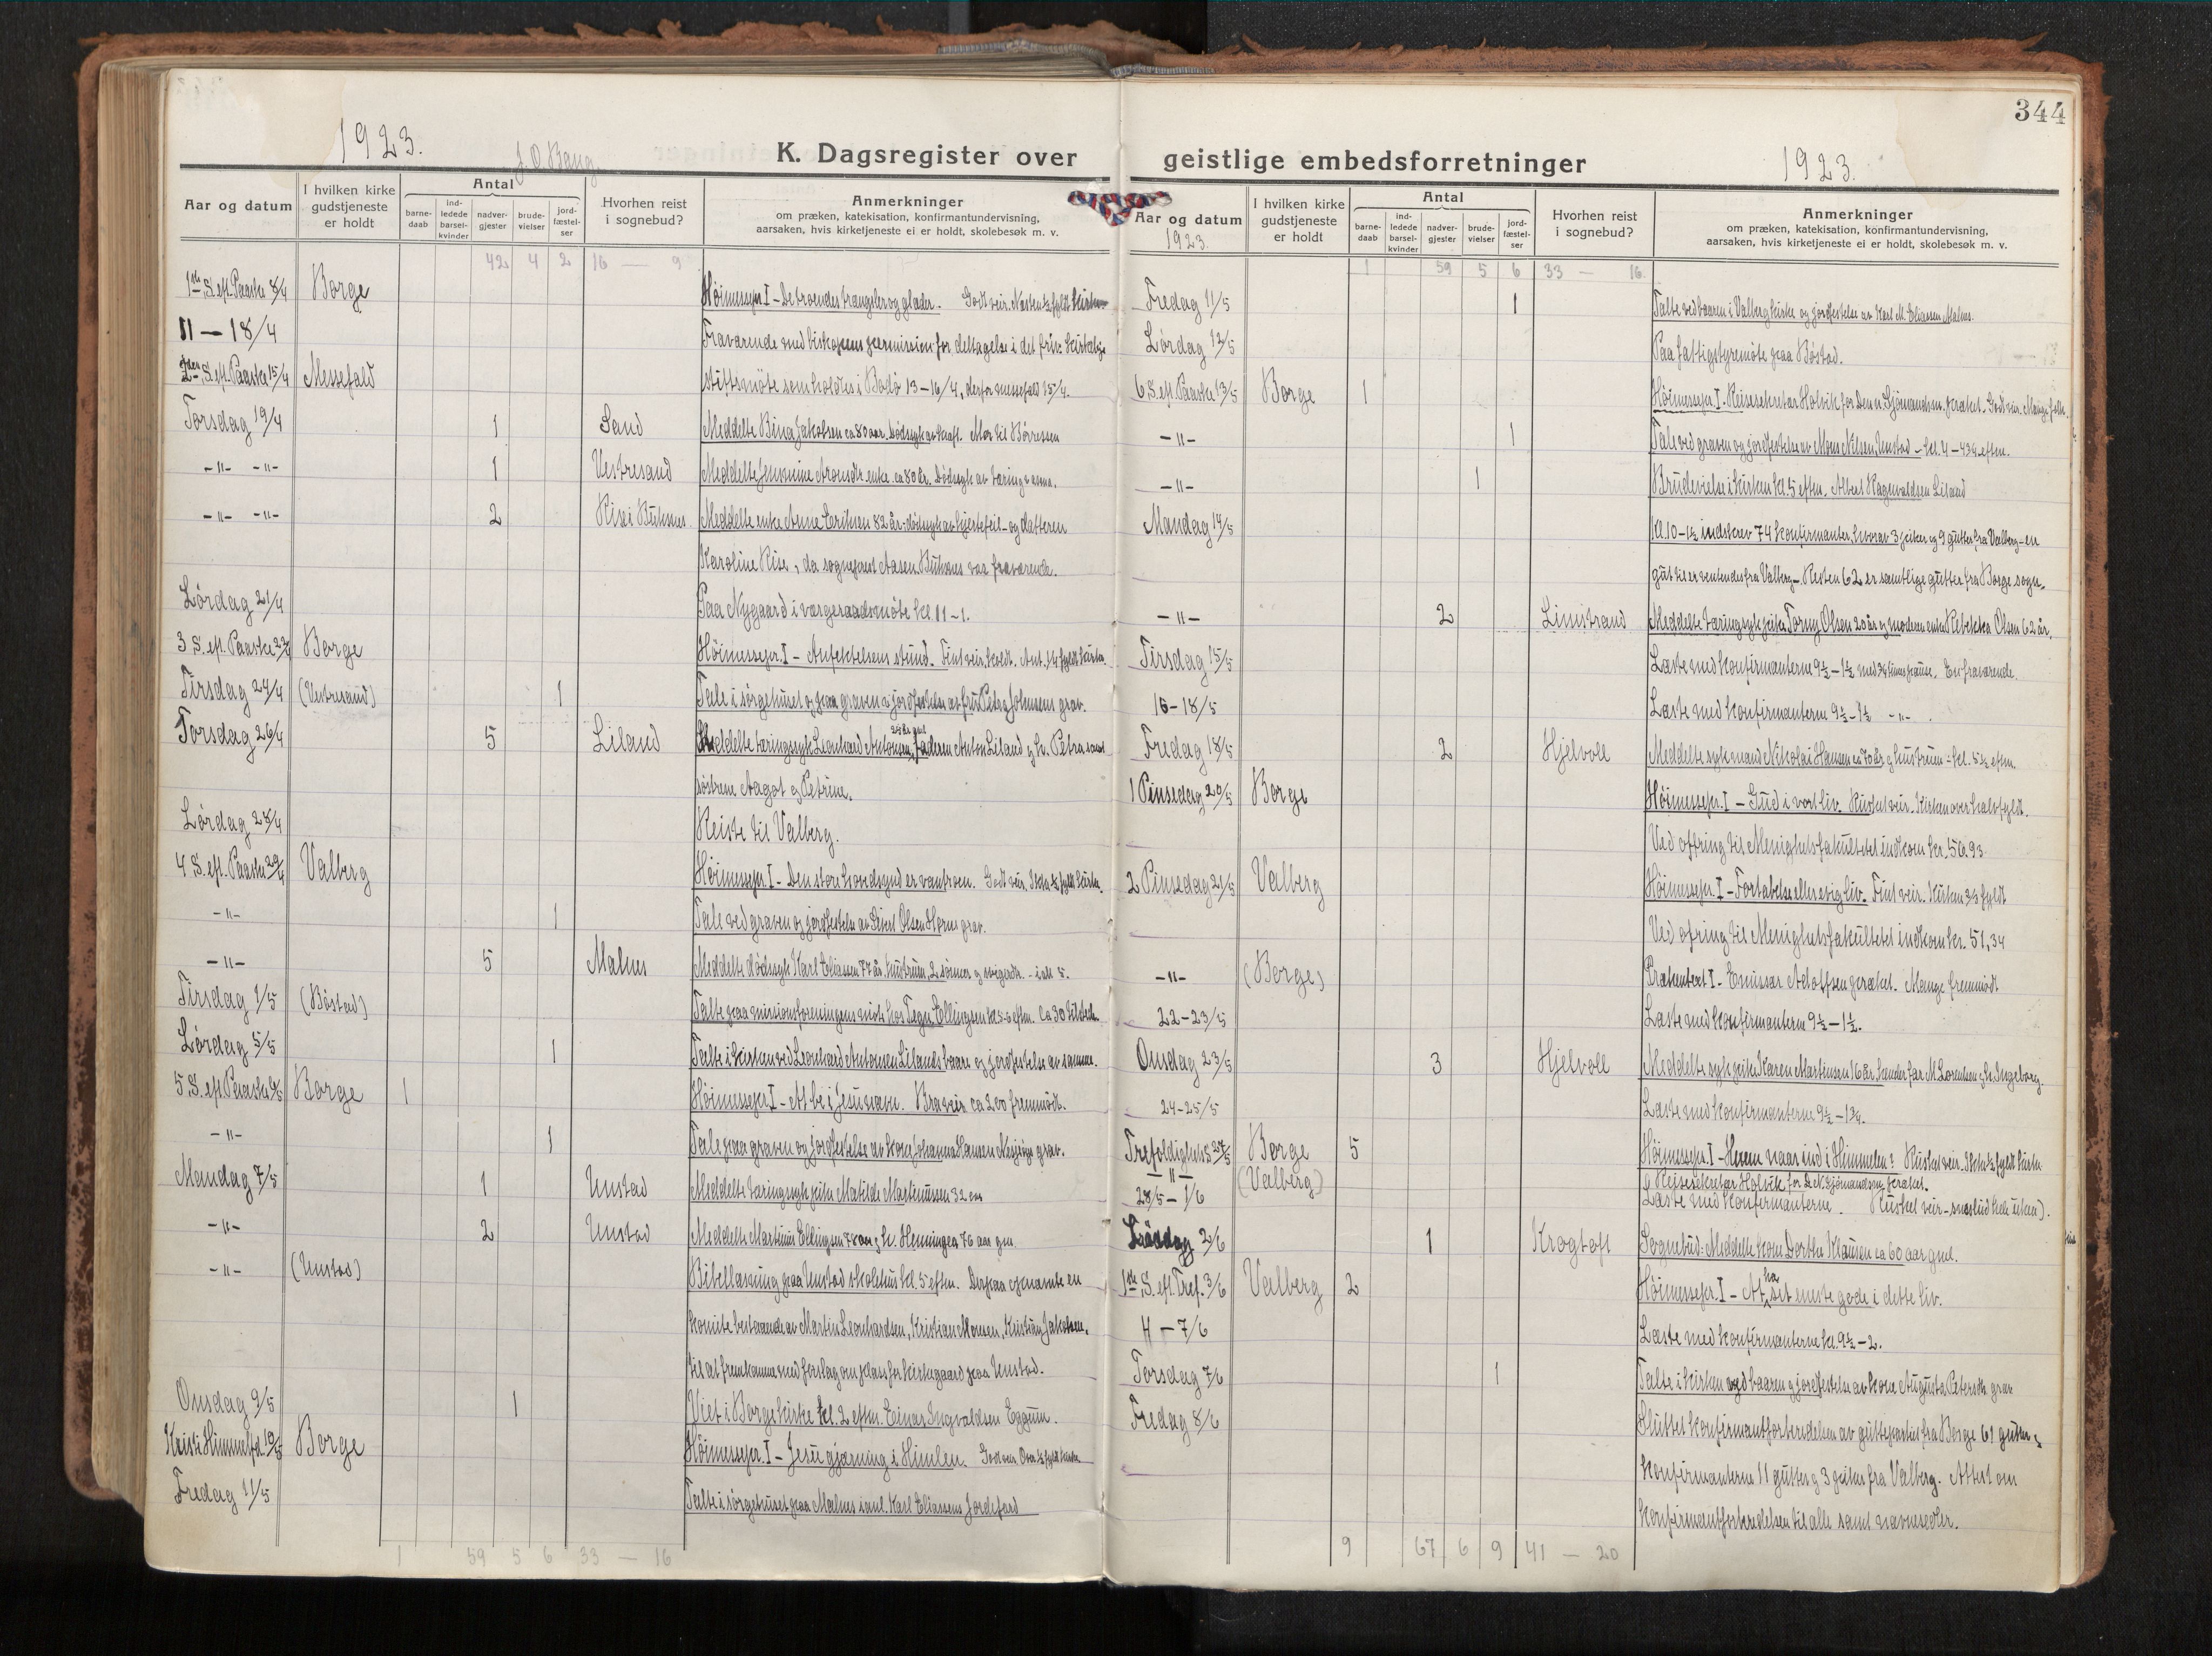 344
1923.
J. O. Bang
K. Dagsregister over
Aar og datum
I hvilken kirke gudstjeneste er holdt
Antal
barne-daab
ind-ledede barsel-kvinder
nadver-gjester
brude-vielser
jord-fæstel-ser
Hvorhen reist i sognebud?
Anmerkninger
om præken, katekisation, konfirmantundervisning,
aarsaken, hvis kirketjeneste ei er holdt, skolebesøk m. v.
42 4 2 16 — 9
1ste S. eft. Paaske 8/4 Borge Høimessepr. I – De troendes trængsler og glæder. Godt veir. Næsten ½ fyldt kirke
11 – 18/4 Fraværende med biskopens permission for deltagelse i det frie kirkelige
2den S. eft. Paaske 15/4 Messefald stiftsmøte som holdes i Bodø 13–16/4, derfor messefald 15/4.
Torsdag 19/4 1 Sand Meddelte Jakobsen ca 80 aar. Dødssyk av kræft. Mor til Børressen
–"– –"– 1 Vestresand Meddelte enke ca 80 år. Dødssyk av tæring
–"– –"– 2 Rise i Buksnes Meddelte enke Anne Eriksen 82 år dødssyk av hjertefeil – og datteren
Karoline Rise, da sogneprest Aasen Buksnes var fraværende.
Lørdag 21/4 Paa Nygaard i vergeraadsmøte kl. 11–1.
3 S. eft. Paaske 22/4 Borge Høimessepr. I – Anfektelsens stund. Fint veir, koldt. Ant. ¼ fyldt kirke.
Tirsdag 24/4 (Vestresand) 1 Tale i sørgehuset og paa graven og jordfæstelse av fru Petra Johnsens grav.
Torsdag 26/4 5 Liland Meddelte tæringssyk Leonhard Antonsen, faderen Anton Liland og h. Petra samt
søstrene Aagot og Petrine.
Lørdag 28/4 Reiste til Valberg.
4 S. eft. Paaske 29/4 Valberg Høimessepr. I – Den store hovedsynd er vantroen. Godt veir. ½ fyldt kirke.
–"– 1 Tale ved graven og jordfæstelse av Sivert Olsen grav.
–"– 5 Malnes Meddelte dødssyk Karl Eliassen 77 år, hustrum, 2 sønner og svigerdtr. – i alt 5.
Tirsdag 1/5 (Bøstad) Talte paa missionsforeningens møte hos Ellingsen kl. 5-6 eftm. Ca 30 tilstede.
Lørdag 5/5 1 Talte i kirken ved Leonhard Antonsen Lilands baare og jordfæstelse av samme.
5 S. eft. Paaske 6/5 Borge 1 Høimessepr. I – At be i Jesu navn. Bra veir ca 200 fremmødt.
–"– 1 Tale paa graven og jordfæstelse av Johanna Hansen grav.
Mandag 7/5 1 Unstad Meddelte tæringssyk pike Matilde Martinussen 32 aar
–"– 2 Unstad Meddelte Martinus Ellingsen 78 aar og h. Henningea 76 aar gm.
–"– (Unstad) Bibellæsning paa Unstad skolehus kl. 5 eftm. Derpaa opnævnte en
komite bestaaende av Martin Leonhardsen, Kristian Monsen, Kristian Jakobsen,
til at fremkomme med forslag om plass for kirkegaard paa Unstad.
Onsdag 9/5 1 Viet i Borge kirke kl. 2 eftm. Einar Ingvaldsen Eggum.
Kristi Himmelfd. 10/5 Borge Høimessepr. I – Jesu gjerning i Himlen. Godt veir. Over ½ fyldt kirke
Fredag 11/5 Talte i sørgehuset paa Malnes i anl. Karl Eliassens jordefærd
1 59 5 6 33 — 16
geistlige embedsforretninger
1923.
Aar og datum
1923.
I hvilken kirke gudstjeneste er holdt
Antal
barne-daab
ind-ledede barsel-kvinder
nadver-gjester
brude-vielser
jord-fæstel-ser
Hvorhen reist i sognebud?
Anmerkninger
om præken, katekisation, konfirmantundervisning,
aarsaken, hvis kirketjeneste ei er holdt, skolebesøk m. v.
1 59 5 6 33 — 16
Fredag 11/5 1 Talte ved baaren i Valberg kirke og jordfæstelse av Karl M. Eliassen Malnes.
Lørdag 12/5 Paa fattigstyremøte paa Bøstad.
6 S. eft. Paaske 13/5 Borge 1 Høimessepr. I. Reisesekretær Holvik for Den n. Sjømandsm. præket. Godt veir. Mange folk.
–"– 1 Tale ved graven og jordfæstelse av Mons Nilsen, Unstad – kl. 4–4¾ eftm.
–"– 1 Brudevielse i kirken kl. 5 eftm. Albert Ragnvaldsen Liland
Mandag 14/5 Kl. 10–1½ indskrev 74 konfirmanter, hvorav 3 piker og 9 gutter fra Valberg – en
gut til er ventendes fra Valberg –. Resten 62 er samtlige gutter fra Borge sogn.
–"– 2 Limstrand Meddelte tæringssyk pike Torny Olsen 20 år og moderen enke Rebekka Olsen 62 år.
Tirsdag 15/5 Læste med konfirmanterne 9½–1½ med ¾ times pause. En fraværende.
16–18/5 Læste med konfirmanterne 9½–1½ –"– .
Fredag 18/5 2 Hjelvoll Meddelte syk mand Nikolai Hansen ca 70 år og hustruen – kl. 5½ eftm.
1 Pinsedag 20/5 Borge Høimessepr. I – Gud i vort liv. Rusket veir. Kirken over halvfyldt.
Ved offring til Menighetsfakultetet indkom kr. 56,93
2 Pinsedag 21/5 Valberg Høimessepr. I – Fortabelse eller evig liv. Fint veir. Kirken ¾ fyldt
Ved ofring til Menighetsfakultetet indkom kr. 51,34
–"– (Borge) Prækentext I – Emissær Adolfsen præket. Mange fremmødt
22–23/5 Læste med konfirmanterne 9½–1½.
Onsdag 23/5 3 Hjelvoll Meddelte syk pike Karen Martinsen 16 år, hendes far M. Lorentsen og h. Ingeborg.
24–25/5 Læste med konfirmanterne 9½–1¾.
Trefoldighets S. 27/5 Borge 5 Høimessepr. I – Hvem naar ind i Himmelen? Rusket veir. ½ fyldt kirke
–"– (Valberg) Reisesekretær Holvik for D. N. Sjømandsm. prækte.
28/5 – 1/6 Læste med konfirmanterne. Rusket veir – snesludd hele uken).
Lørdag 2/6 1 Krogtoft Sognebud: Meddelte kone Dorthe Klausen ca 60 aar gml.
1ste S. eft. Tref. 3/6 Valberg 2 Høimessepr. I – At ha sit meste gode i dette liv.
4 – 7/6 Læste med konfirmanterne kl. 9½–2.
Torsdag 7/6 1 Talte i kirken ved baaren og jordfæstelse av kone Augusta Petersdtr. grav
Fredag 8/6 Sluttet konfirmantforberedelsen av guttepartiet fra Borge 61 gutter &
konfirmanterne 11 gutter og 3 piker fra Valberg. Attest om
konfirmantforberedelsen til alle samt navnesedler.
9 67 6 9 41 — 20